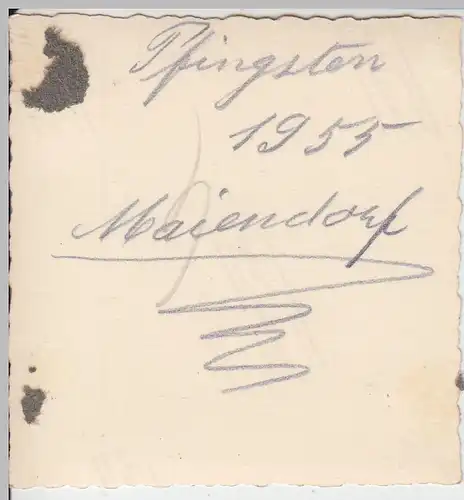 Pfingsten
1955
Maiendorf